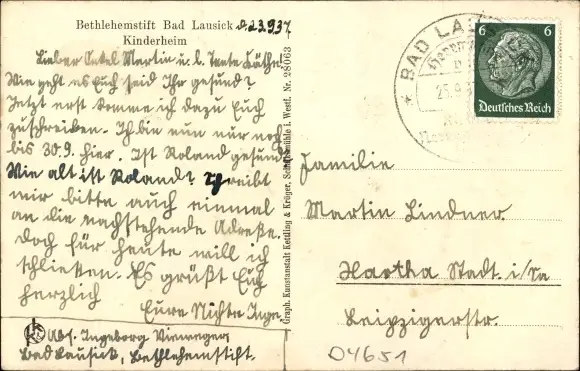 Bethlehemstift Bad Lausick d. 23.9.37.
Kinderheim
Lieber Onkel Martin u. l. Tante Käthe!
Wie geht es Euch seid Ihr gesund?
Jetzt erst komme ich dazu Euch
zuschreiben. Ich bin nun nur noch
bis 30.9. hier. Ist Roland gesund?
Wie alt ist Roland? Schreibt
mir bitte auch einmal
an die nachstehende Adreße.
Doch für heute will ich
schließen. Es grüßt Euch
herzlich
Eure Nichte Inge.
Abs. Ingeborg
Bad Lausick, Bethlehemstift.
Graph. Kunstanstalt Kettling & Krüger, Schalksmühle i. Westf. Nr. 28063
BAD LAUSICK
25.9.
6 6
Deutsches Reich
Familie
Martin Lindner.
Hartha Stadt. i/Sa
Leipzigerstr.
04651